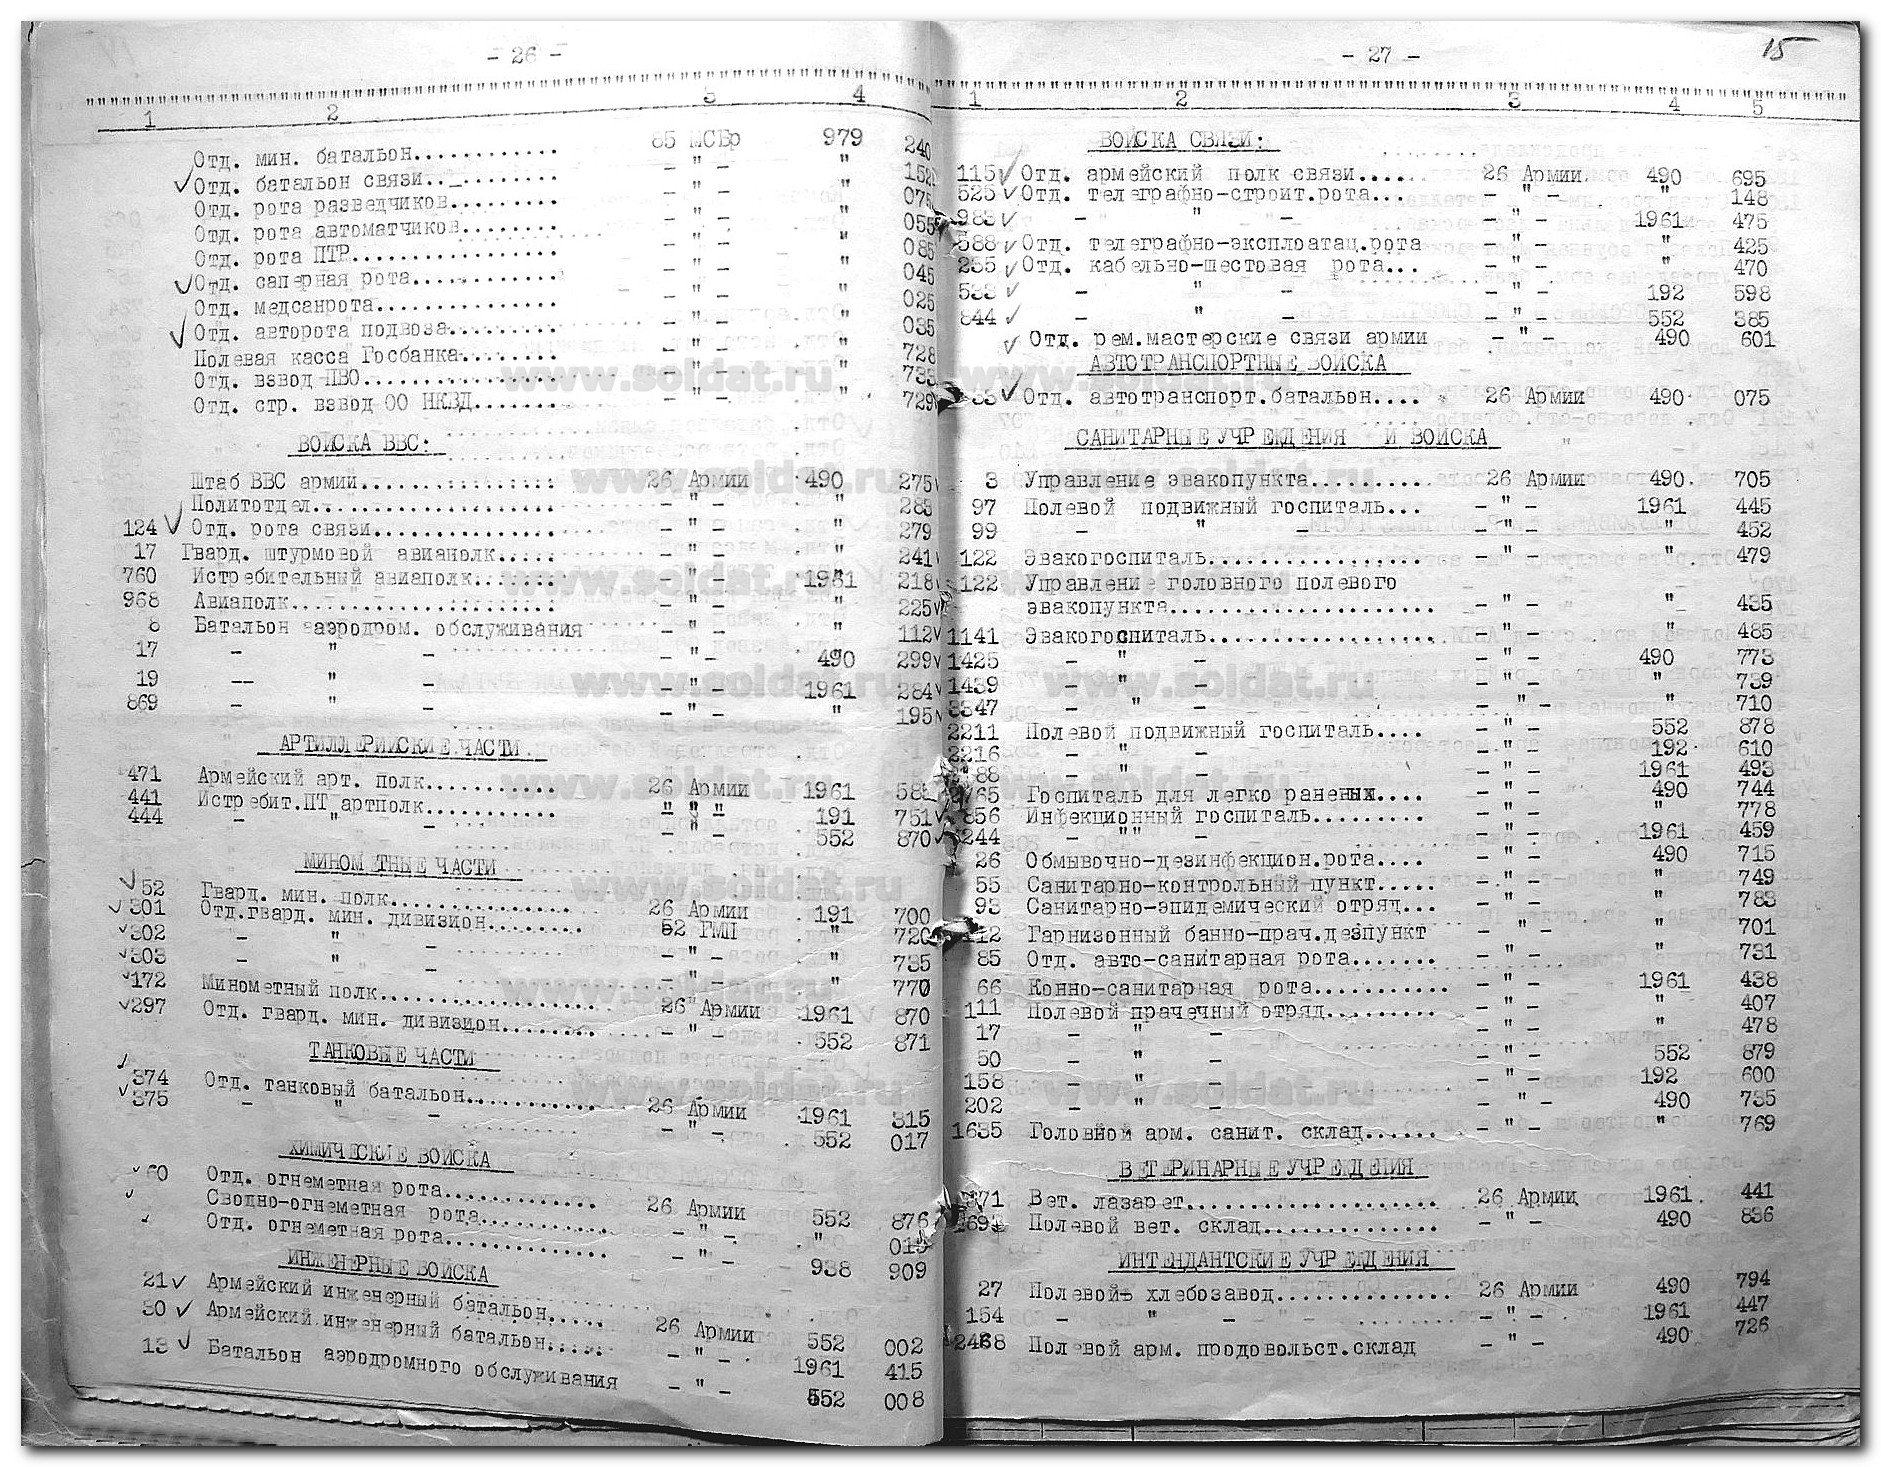 - 26 -
1 2 3 4
Отд. мин. батальон............ 85 МСБр 979 240
Отд. батальон связи........... - " - " 152
Отд. рота разведчиков......... - " - " 075
Отд. рота автоматчиков........ - " - " 055
Отд. рота ПТР................. - " - " 085
Отд. саперная рота............ - " - " 045
Отд. медсанрота............... - " - " 025
Отд. авторота подвоза......... - " - " 035
Полевая касса Госбанка........ - " - " 728
Отд. взвод ПВО................ - " - " 733
Отд. стр. взвод ОО НКВД....... - " - " 729
ВОЙСКА ВВС:
Штаб ВВС армии................ 26 Армии 490 275
Политотдел.................... - " - " 283
124 Отд. рота связи............... - " - " 279
17 Гвард. штурмовой авиаполк...... - " - " 241
760 Истребительный авиаполк....... - " - 1961 218
968 Авиаполк...................... - " - " 225
8 Батальон аэродром. обслуживания - " - " 112
17 - " - - " - 490 299
19 -- " - - " - 1961 284
869 - " - - " - " 195
АРТИЛЛЕРИЙСКИЕ ЧАСТИ
471 Армейский арт. полк........... 26 Армии 1961
441 Истребит.ПТ артполк........... " " " 191 751
444 - " - - " - 552 870
МИНОМЕТНЫЕ ЧАСТИ
52 Гвард. мин. полк.............. 26 Армии 191 700
301 Отд.гвард. мин. дивизион......... 52 ГМП " 720
302 - " - - " - " 735
303 - " - - " - " 770
172 Минометный полк................ 26 Армии 1961 870
297 Отд. гвард. мин. дивизион......... - " - 552 871
ТАНКОВЫЕ ЧАСТИ
374 Отд. танковый батальон............. 26 Армии 1961 315
375 - " - - " - 552 017
ХИМИЧЕСКИЕ ВОЙСКА
60 Отд. огнеметная рота.............. 26 Армии 552 876
Сводно-огнеметная рота............ - " - "
Отд. огнеметная рота.............. - " - 938 909
ИНЖЕНЕРНЫЕ ВОЙСКА
21 Армейский инженерный батальон..... 26 Армии 552 002
30 Армейский инженерный батальон..... - " - 1961 415
13 Батальон аэродромного обслуживания - " - 552 008
- 27 -
15
1 2 3 4 5
ВОЙСКА СВЯЗИ:
115 Отд. армейский полк связи...... 26 Армии. 490 695
525 Отд. телеграфно-строит.рота.. - " - " 148
983 - " - - " - 1961 475
588 Отд. телеграфно-эксплоатац.рота - " - " 425
235 Отд. кабельно-шестовая рота... - " - " 470
533 - " - - " - 192 598
844 - " - - " - 552 385
Отд. рем.мастерские связи армии - " - 490 601
АВТОТРАНСПОРТНЫЕ ВОЙСКА
Отд. автотранспорт.батальон.... 26 Армии 490 075
САНИТАРНЫЕ УЧРЕЖДЕНИЯ И ВОЙСКА
3 Управление эвакопункта.......... 26 Армии 490 705
97 Полевой подвижный госпиталь... - " - 1961 445
99 - " - - " - " 452
122 Эвакогоспиталь.................. - " - " 479
122 Управление головного полевого
эвакопункта...................... - " - " 435
1141 Эвакогоспиталь................. - " - " 485
1425 - " - - " - 490 773
1439 - " - - " - " 739
3347 - " - - " - " 710
2211 Полевой подвижный госпиталь.... - " - 552 878
2216 - " - - " - 192 610
88 - " - - " - 1961 493
Госпиталь для легко раненых.... - " - 490 744
856 Инфекционный госпиталь......... - " - " 778
244 - "" - - " - 1961 459
26 Обмывочно-дезинфекцион.рота.... - " - 490 715
55 Санитарно-контрольный пункт..... - " - " 749
93 Санитарно-эпидемический отряд... - " - " 783
Гарнизонный банно-прач.дезпункт - " - " 701
85 Отд. авто-санитарная рота....... - " - " 731
66 Конно-санитарная рота............ - " - 1961 438
111 Полевой прачечный отряд......... - " - " 407
17 - " - - " - " 478
50 - " - - " - 552 879
158 - " - - " - 192 600
202 - " - - " - 490 735
1635 Головной арм. санит. склад...... - " - " 769
ВЕТЕРИНАРНЫЕ УЧРЕЖДЕНИЯ
71 Вет. лазарет.................... 26 Армии 1961 441
Полевой вет. склад.............. - " - 490 836
ИНТЕНДАНТСКИЕ УЧРЕЖДЕНИЯ
27 Полевой хлебозавод.............. 26 Армии 490 794
154 - " - - - " - 1961 447
Полевой арм. продовольст.склад - " - 490 726
www.soldat.ru
www.soldat.ru
www.soldat.ru
www.soldat.ru
www.soldat.ru
www.soldat.ru
www.soldat.ru
www.soldat.ru
www.soldat.ru
www.soldat.ru
www.soldat.ru
www.soldat.ru
www.soldat.ru
www.soldat.ru